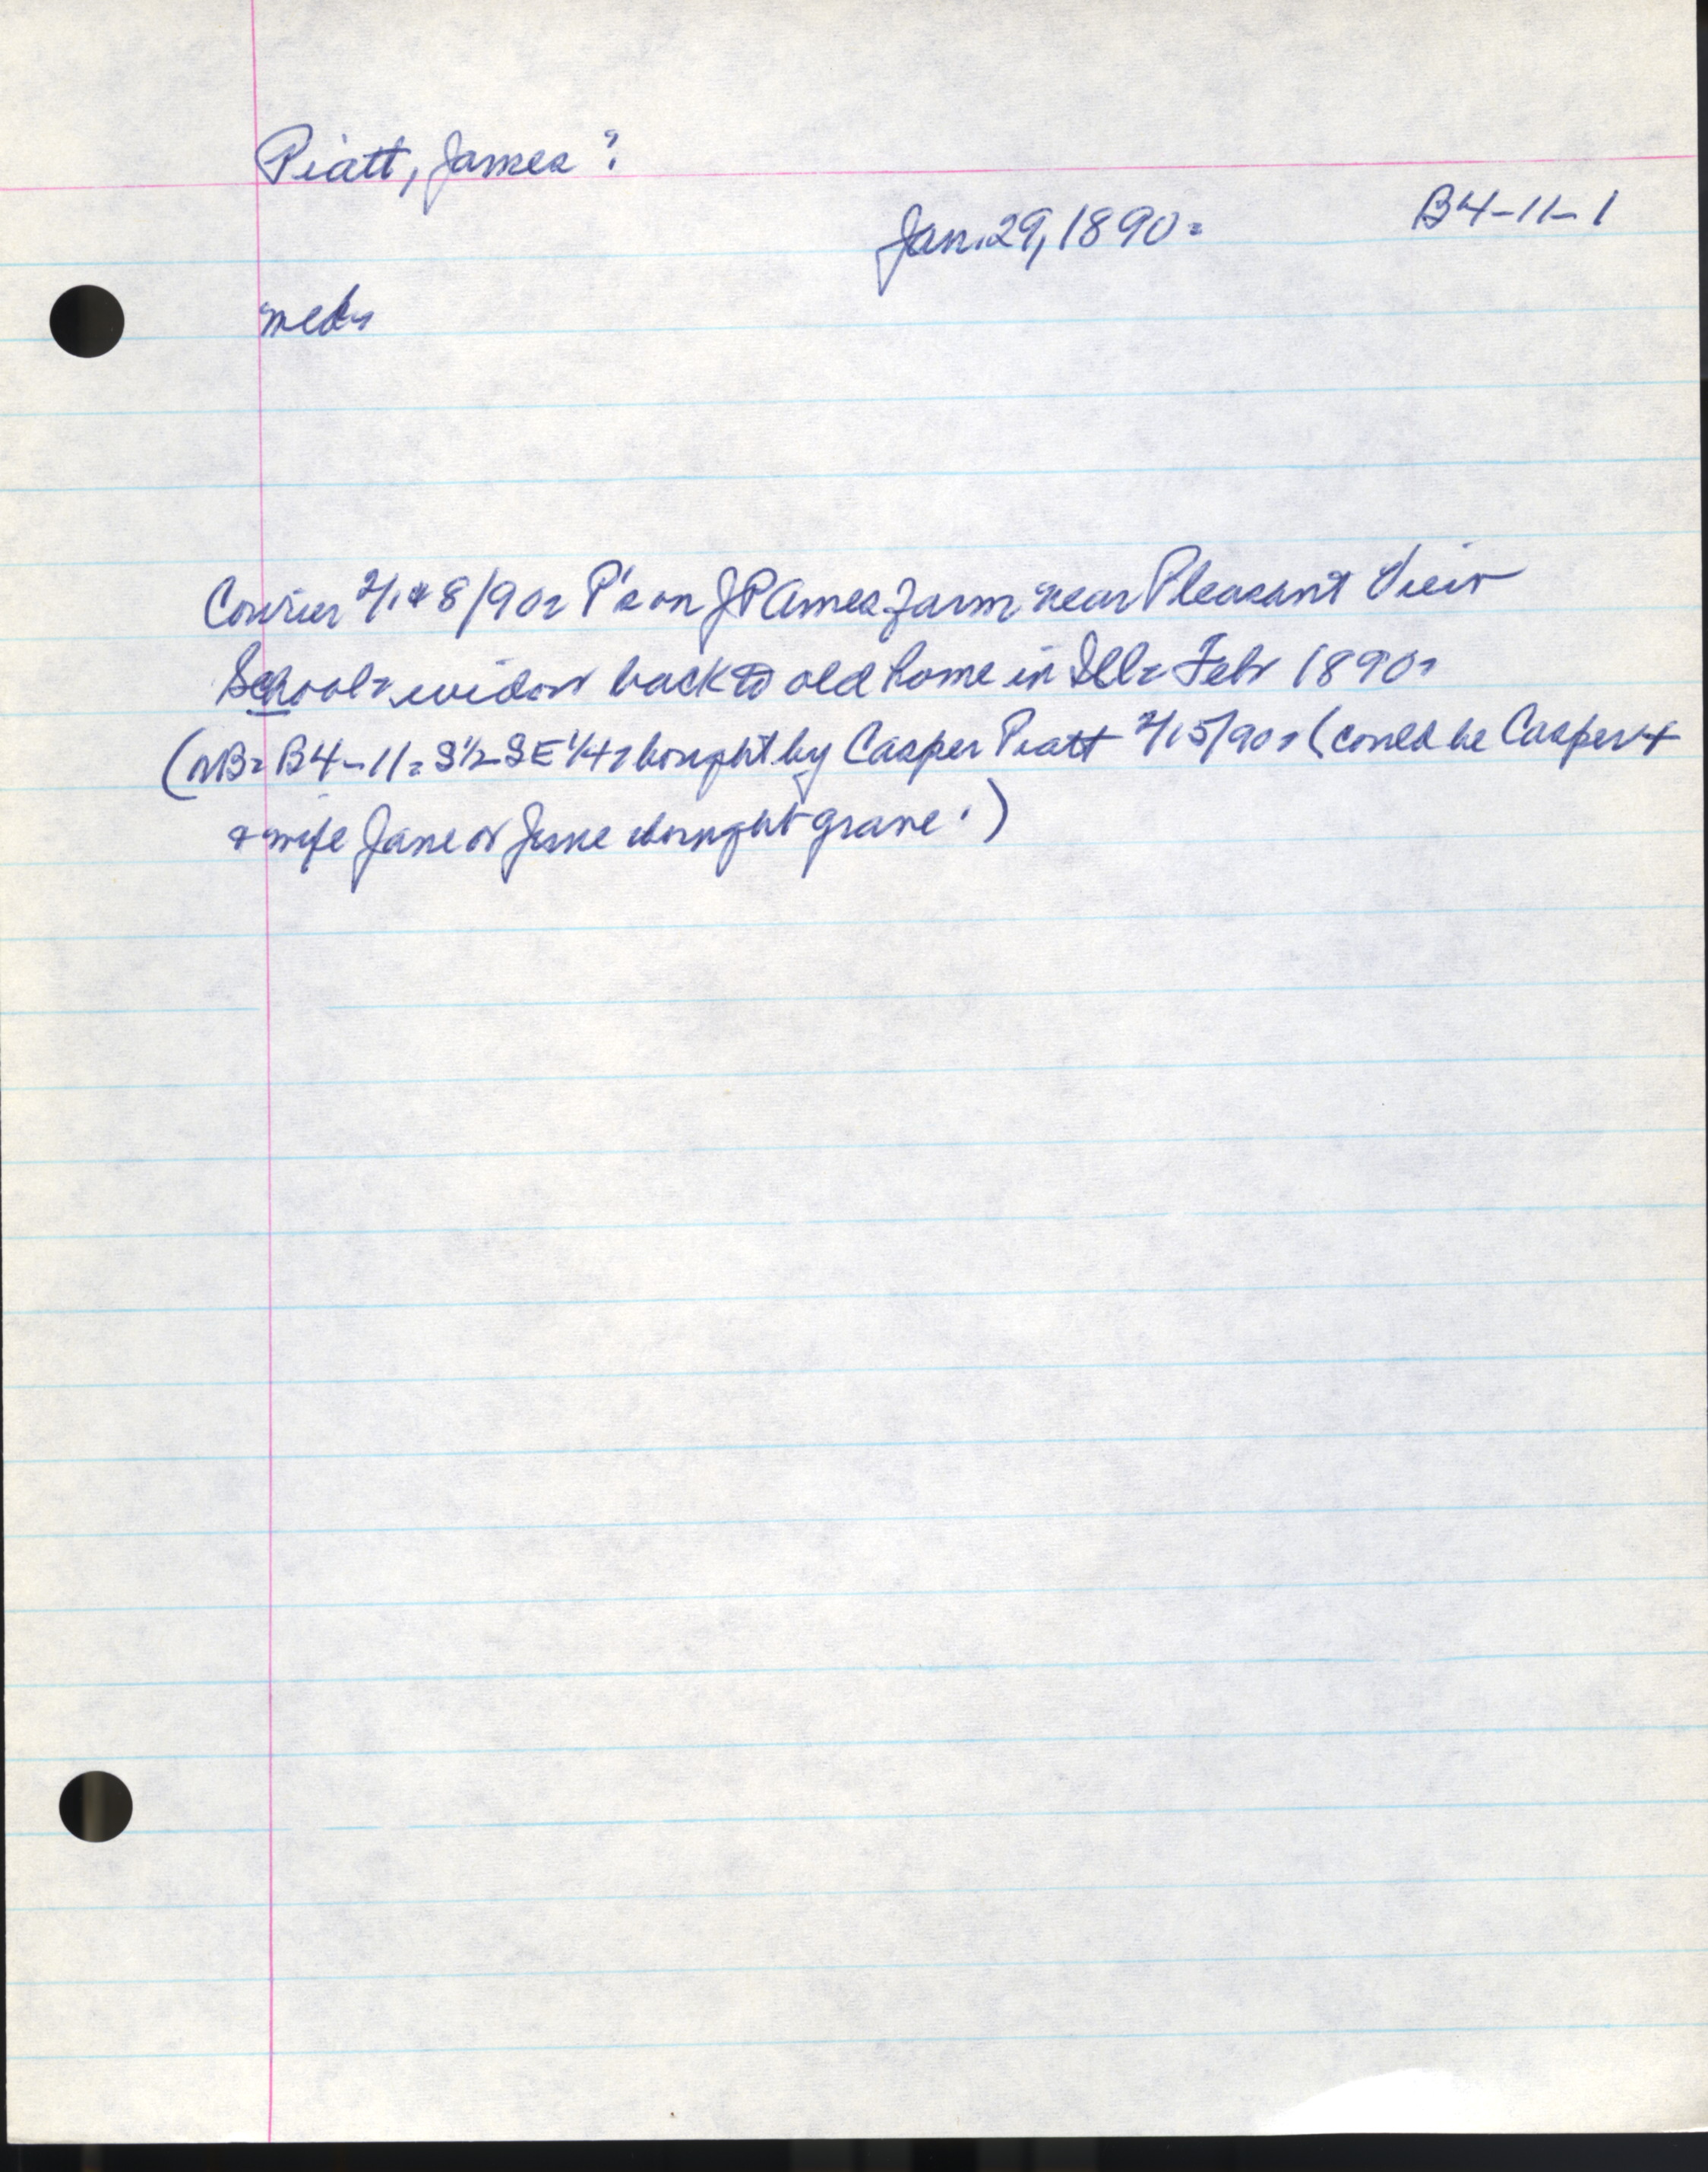 Piatt, James ?
Jan. 29, 1890 -
B4-11-1
med -
Courier 2/1 & 8/90 - P's on JP Ames farm near Pleasant View
School - widow back to old home in Ill - Feb 1890 -
(NB - B4-11 - S 1/2 SE 1/4 - bought by Casper Piatt 2/15/90 - (could be Casper &
& wife Jane or June bought grave.)